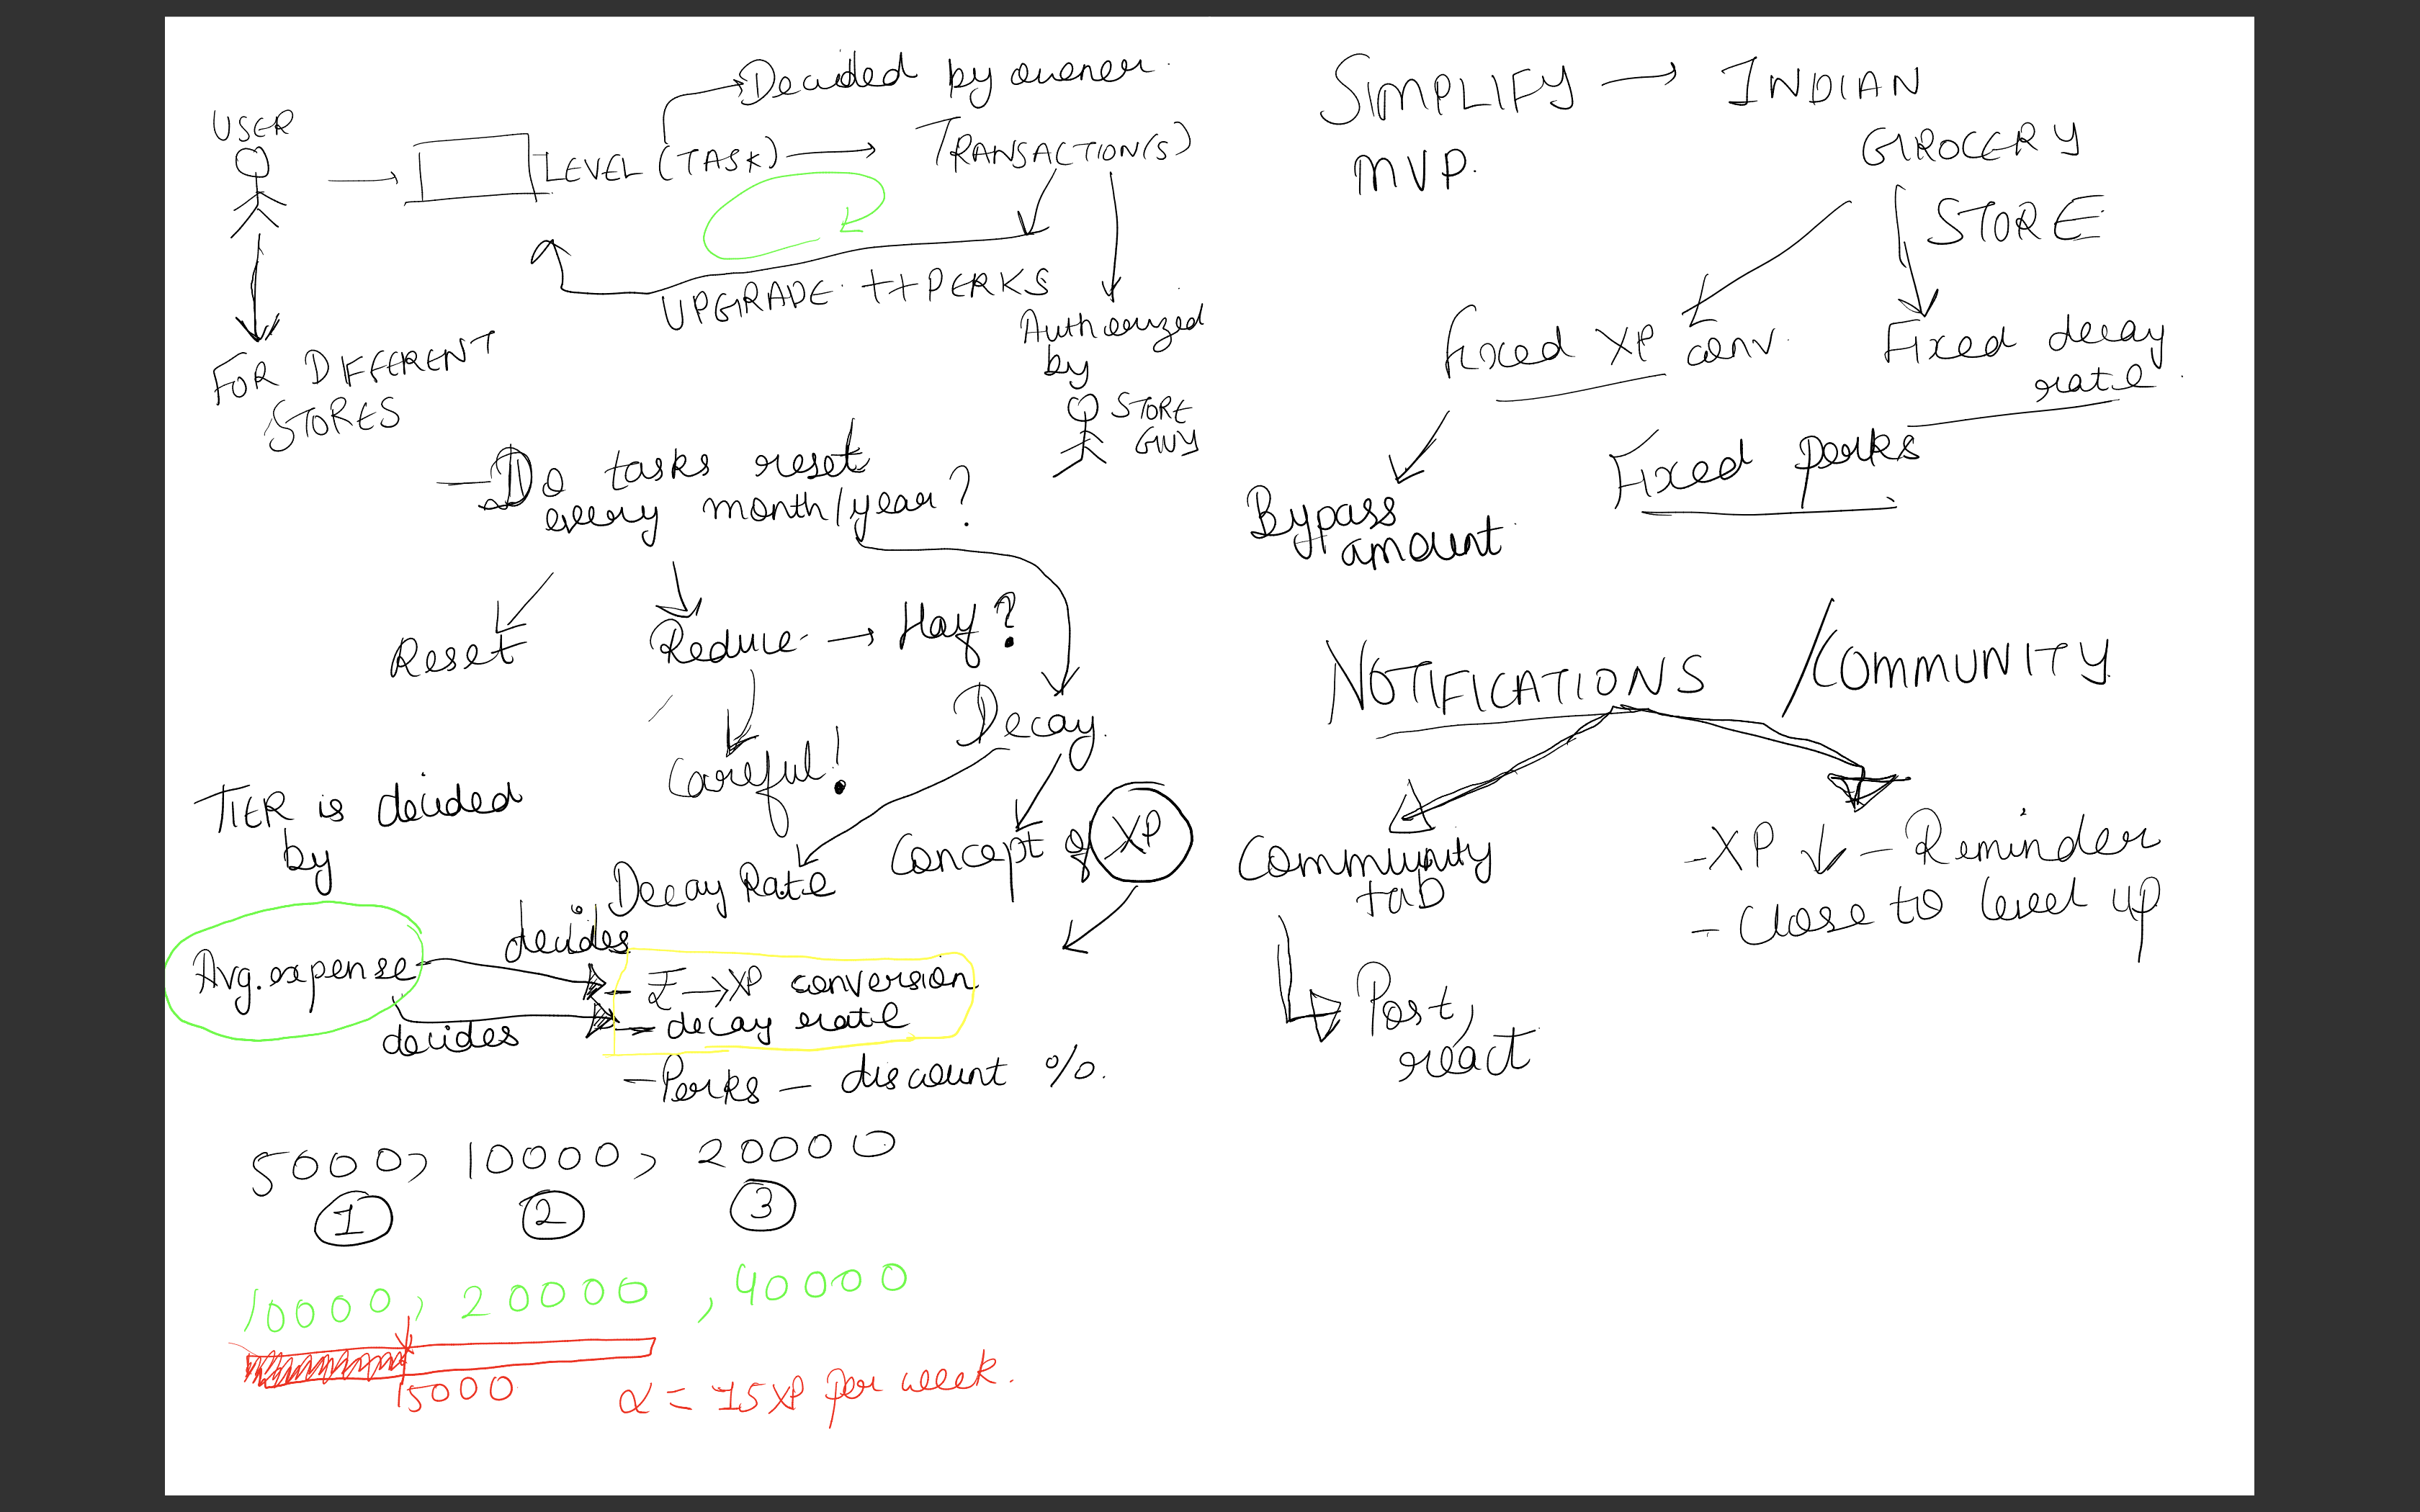 USER
Decided by owner.
LEVEL (TASK)
TRANSACTION(S)
UPGRADE ++PERKS
Authorized
by
STORE
GUY
FOR DIFFERENT
STORES
- Do tasks reset
every month/year?
Reset
Reduce → Half?
Careful!
Decay.
Decay Rate
Concept of XP
TIER is decided
by
Avg. expense
decides
decides
- ₹ → XP conversion
- decay rate
- Perks - discount %.
5000, 10000, 20000
1 2 3
10000, 20000, 40000
15000
α = 15 XP per week.
SIMPLIFY → INDIAN
MVP.
GROCERY
STORE
Fixed XP conv.
Fixed decay
rate.
Fixed perks
Bypass
amount
NOTIFICATIONS /COMMUNITY
Community
tab
Post,
react
- XP ↓ - Reminder
- Close to level up